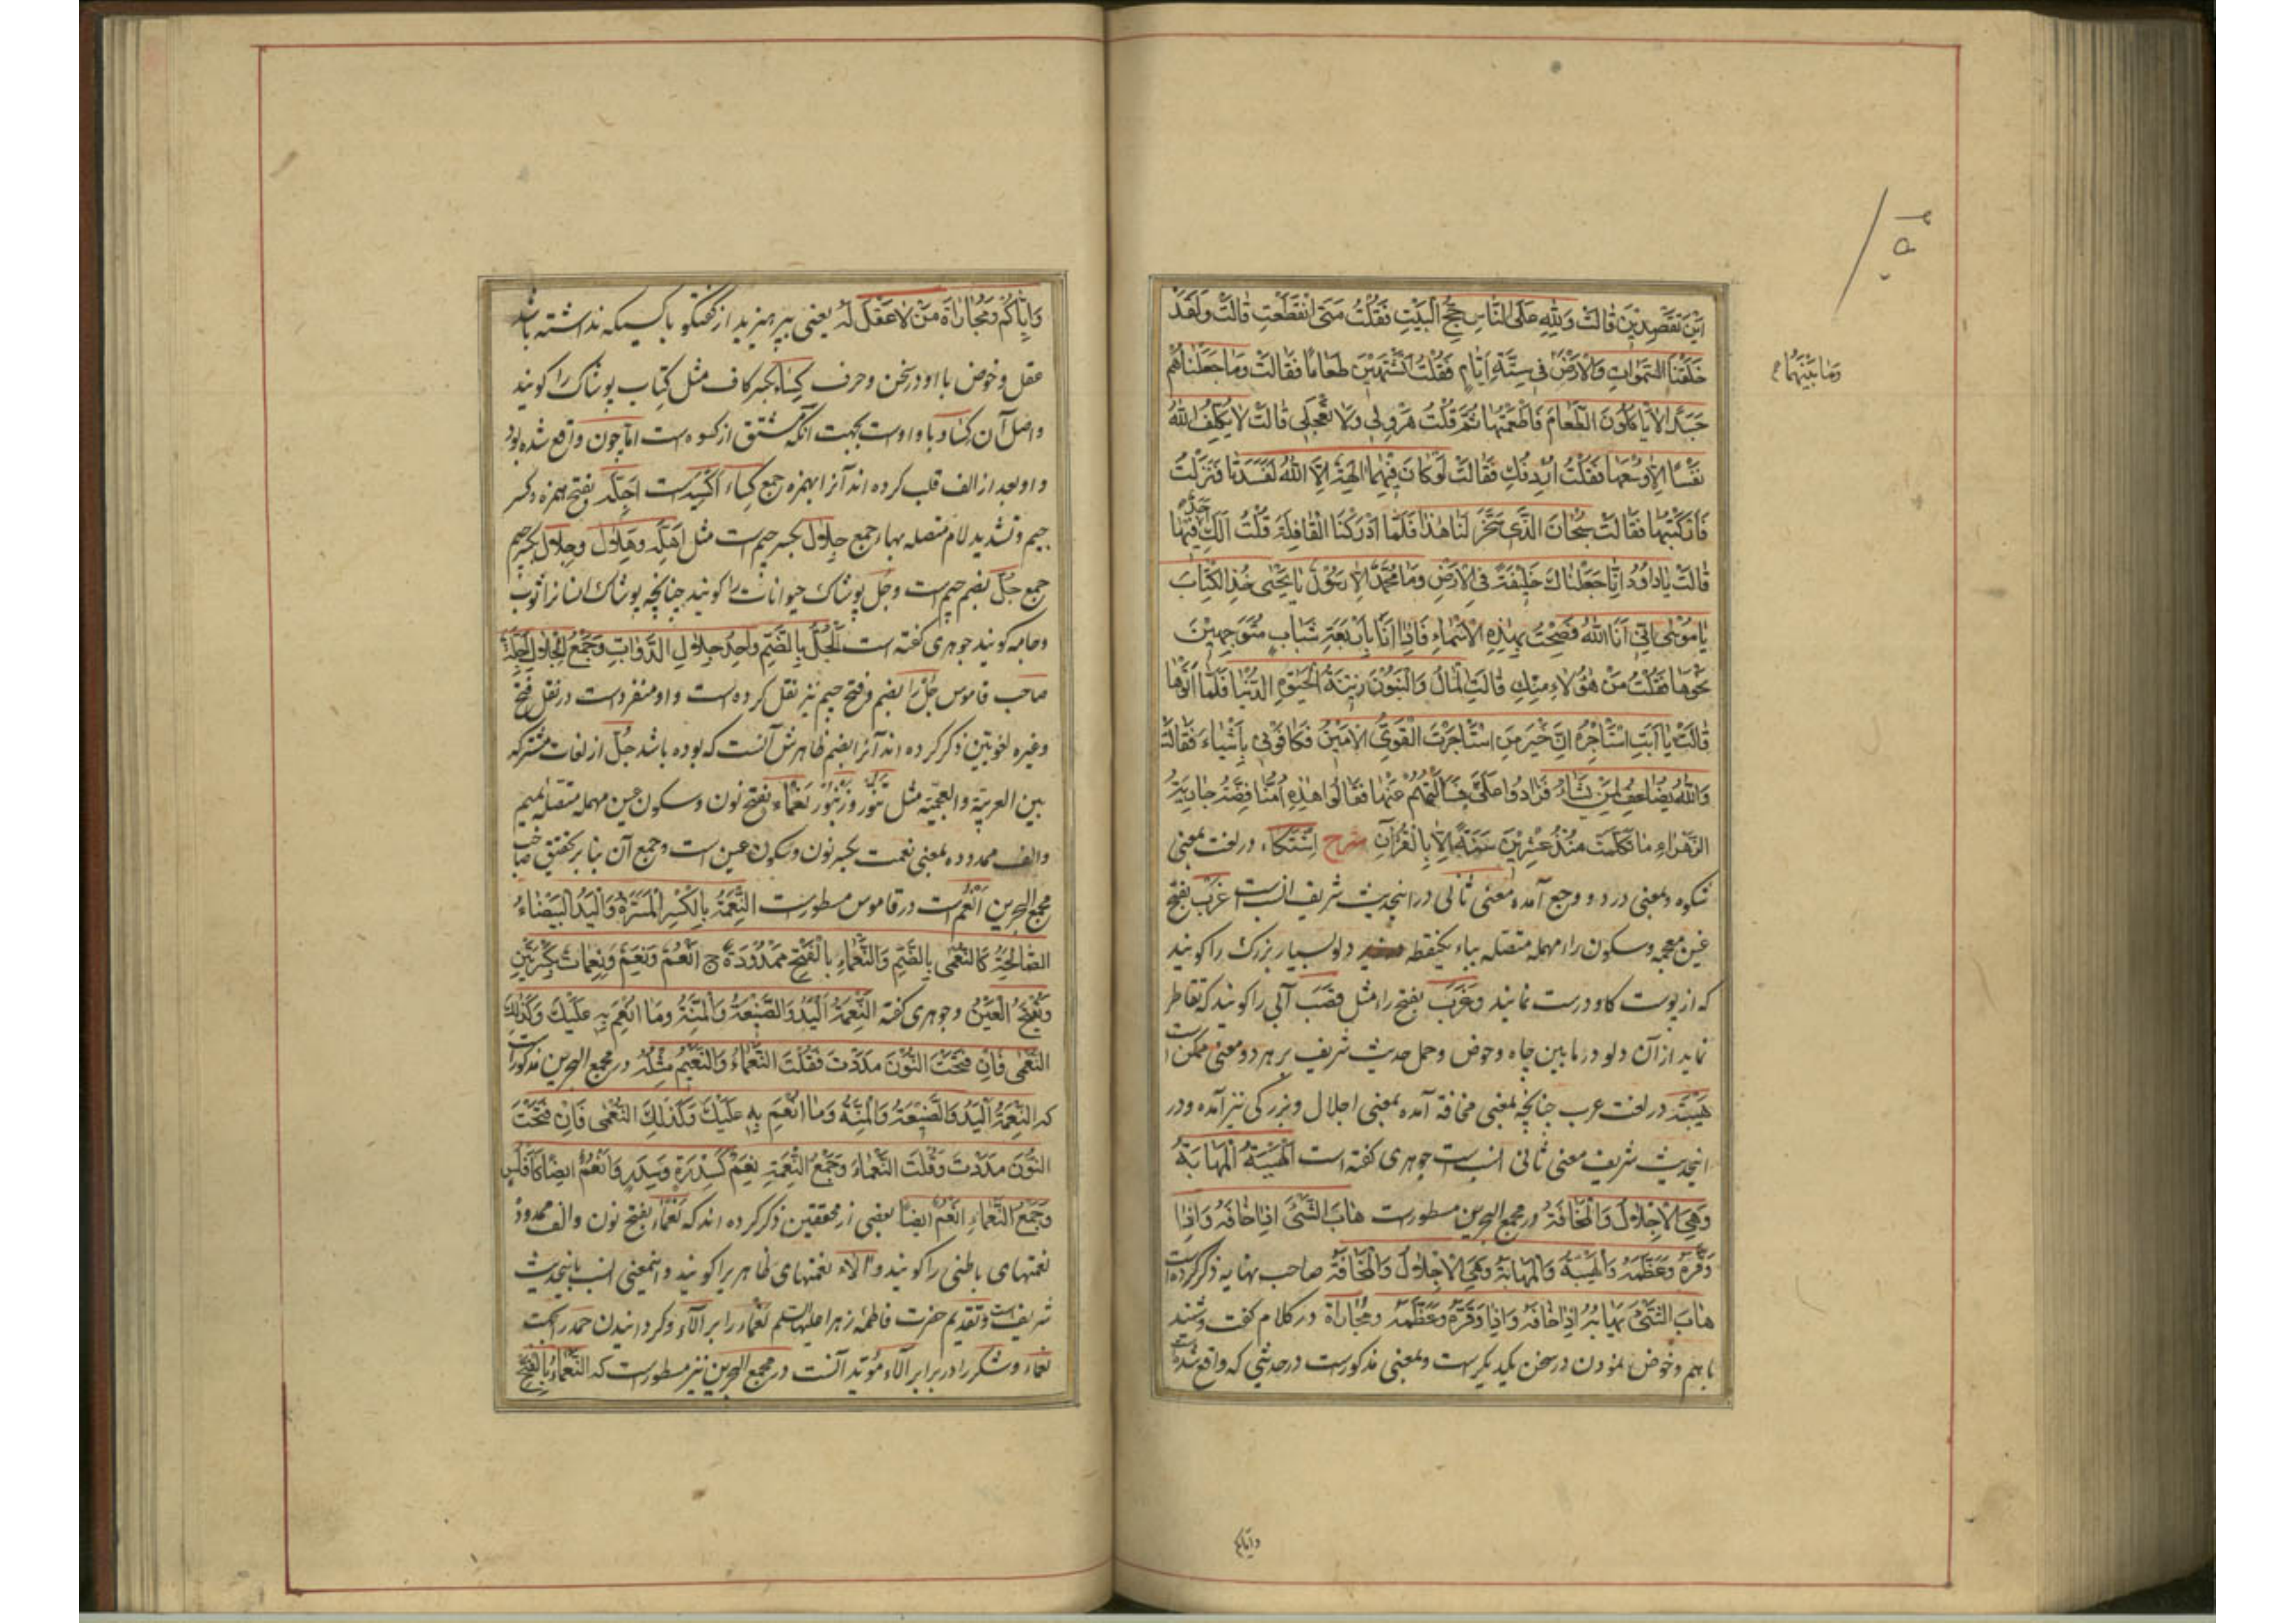 اَيْنَ تَقْصِدِينَ قَالَتْ وَلِلّهِ عَلَى النَّاسِ حِجُّ الْبَيْتِ فَقُلْتُ مَتَى انْقَطَعْتِ قَالَتْ وَلَقَدْ
خَلَقْنَا السَّمٰوَاتِ وَالْاَرْضَ فِي سِتَّةِ اَيَّامٍ فَقُلْتُ اَتَشْتَهِينَ طَعَامًا فَقَالَتْ وَمَا جَعَلْنَاهُمْ
وَمَا بَيْنَهُمَا
جَسَدًا لَا يَاْكُلُونَ الطَّعَامَ فَاَطْعَمْتُهَا ثُمَّ قُلْتُ هَرْوِلِي وَلَا تَعْجَلِي قَالَتْ لَا يُكَلِّفُ اللّهُ
نَفْسًا اِلَّا وُسْعَهَا فَقُلْتُ اُرْدِفُكِ فَقَالَتْ لَوْ كَانَ فِيهِمَا اٰلِهَةٌ اِلَّا اللّهُ لَفَسَدَتَا فَنَزَلْتُ
فَاَرْكَبْتُهَا فَقَالَتْ سُبْحَانَ الَّذِي سَخَّرَ لَنَا هٰذَا فَلَمَّا اَدْرَكْنَا الْقَافِلَةَ قُلْتُ اَلَكِ اَحَدٌ فِيهَا
قَالَتْ يَا دَاوُدُ اِنَّا جَعَلْنَاكَ خَلِيفَةً فِي الْاَرْضِ وَمَا مُحَمَّدٌ اِلَّا رَسُولٌ يَا يَحْيٰى خُذِ الْكِتَابَ
يَا مُوسٰى اِنِّي اَنَا اللّهُ فَصِحْتُ بِهٰذِهِ الْاَسْمَاءِ فَاِذَا اَنَا بِاَرْبَعَةِ شَبَابٍ مُتَوَجِّهِينَ
نَحْوَهَا فَقُلْتُ مَنْ هٰؤُلَاءِ مِنْكِ قَالَتْ الْمَالُ وَالْبَنُونَ زِينَةُ الْحَيٰوةِ الدُّنْيَا فَلَمَّا اَتَوْهَا
قَالَتْ يَا اَبَتِ اسْتَأْجِرْهُ اِنَّ خَيْرَ مَنِ اسْتَأْجَرْتَ الْقَوِيُّ الْاَمِينُ فَكَافَوْنِي بِاَشْيَاءَ فَقَالَتْ
وَاللّهُ يُضَاعِفُ لِمَنْ يَشَاءُ فَزَادُوا عَلَيَّ فَسَأَلْتُهُمْ عَنْهَا فَقَالُوا هٰذِهِ اُمُّنَا فِضَّةُ جَارِيَةُ
الزَّهْرَاءِ مَا تَكَلَّمَتْ مُنْذُ عِشْرِينَ سَنَةً اِلَّا بِالْقُرْآنِ شرح اِشْتِكَاء در لغت بمعنی
شکوه و بمعنی درد و وجع آمده و معنی ثانی در اینحدیث شریف انسب است غَرْب بفتح
غین معجمه و سکون راء مهمله متصله بباء یکنقطه دلو بسیار بزرگ را گویند
که از پوست گاو درست نمایند و غَرَب بفتح راء مثل قصَب آبی را گویند که تقاطر
نماید از آن دلو در ما بین چاه و حوض و حمل حدیث شریف بر هر دو معنی ممکن است
هَیْبَة در لغت عرب چنانچه بمعنی مخافة آمده بمعنی اجلال و بزرگی نیز آمده و در
اینحدیث شریف معنی ثانی انسب است جوهری گفته است اَلْهَيْبَةُ الْمَهَابَةُ
وَهِيَ الْاِجْلَالُ وَالْمَخَافَةُ و در مجمع البحرین مسطور است هَابَ الشَّيْءَ اِذَا خَافَهُ وَاِذَا
وَقَّرَهُ وَعَظَّمَهُ وَالْهَيْبَةُ وَالْمَهَابَةُ وَهِيَ الْاِجْلَالُ وَالْمَخَافَةُ صاحب نهایه ذکر کرده است
هَابَ الشَّيْءَ يَهَابُهُ اِذَا خَافَهُ وَاِذَا وَقَّرَهُ وَعَظَّمَهُ و مُجَارَاة در کلام گفت و شنید
با هم و خوض نمودن در سخن یکدیگر است و بمعنی مذکور است در حدیثی که واقع شده است
وایاکم
وَاِيَّاكُمْ وَمُجَارَاةَ مَنْ لَا عَقْلَ لَهُ یعنی بپرهیزید از گفتگو با کسیکه نداشته باشد
عقل و خوض با او در سخن و حرف کِسَاء بکسر کاف مثل کتاب پوشاک را گویند
و اصل آن کِسَاو با واو است بجهت آنکه مشتق از کسوه است اما چون واقع شده بود
واو بعد از الف قلب کرده اند آنرا بهمزه جمع کِسَاء اَکْسِیَه است اَجِلَّه بفتح همزه و کسر
جیم و تشدید لام متصله بهاء جمع جِلال بکسر جیم است مثل اَهِلَّه و هِلَال و جِلال بکسر جیم
جمع جُلّ بضم جیم است و جُل پوشاک حیوانات را گویند چنانچه پوشاک انسانرا ثوب
و جامه گویند جوهری گفته است اَلْجُلُّ بِالضَّمِّ وَاحِدُ جِلَالِ الدَّوَابِّ وَجَمْعُ الْجِلَالِ اَجِلَّةٌ
صاحب قاموس جُلّ را بضم و فتح جیم نیز نقل کرده است و او منفرد است در نقل فتح
و غیره لغویین ذکر کرده اند آنرا بضم ظاهرش آنست که بوده باشد جُلّ از لغات مشترکه
بین العربیّة والعجمیّة مثل تنّور و زنبور نَعْمَاء بفتح نون و سکون عین مهمله متصله بمیم
و الف ممدوده بمعنی نعمت بکسر نون و سکون عین است و جمع آن بنا بر تحقیق صاحب
مجمع البحرین اَنْعُم است در قاموس مسطور است اَلنِّعْمَةُ بِالْكَسْرِ الْمَسَرَّةُ وَالْيَدُ الْبَيْضَاءُ
الصَّالِحَةُ كَالنُّعْمٰى بِالضَّمِّ وَالنَّعْمَاءِ بِالْفَتْحِ مَمْدُودَةً ج اَنْعُمٌ وَنِعَمٌ وَنِعِمَاتٌ بِكَسْرَتَيْنِ
وَتُفْتَحُ الْعَيْنُ و جوهری گفته اَلنِّعْمَةُ الْيَدُ وَالصَّنِيعَةُ وَالْمِنَّةُ وَمَا اُنْعِمَ بِهِ عَلَيْكَ وَكَذٰلِكَ
النُّعْمٰى فَاِنْ فَتَحْتَ النُّونَ مَدَدْتَ فَقُلْتَ النَّعْمَاءُ وَالنَّعِيمُ مِثْلُهُ در مجمع البحرین مذکور است
که اَلنِّعْمَةُ اَلْيَدُ وَالصَّنِيعَةُ وَالْمِنَّةُ وَمَا اُنْعِمَ بِهِ عَلَيْكَ وَكَذٰلِكَ النُّعْمٰى فَاِنْ فَتَحْتَ
النُّونَ مَدَدْتَ وَقُلْتَ النَّعْمَاءَ وَجَمْعُ النِّعْمَةِ نِعَمٌ كَسِدْرَةٍ وَسِدَرٍ وَاَنْعُمٌ اَيْضًا كَاَفْلُسٍ
وَجَمْعُ النَّعْمَاءِ اَنْعُمٌ اَيْضًا بعضی از محققین ذکر کرده اند که نَعْمَاء بفتح نون و الف ممدوده
نعمتهای باطنی را گویند و آلاء نعمتهای ظاهریرا گویند و اینمعنی انسب باینحدیث
شریف است و تقدیم حضرت فاطمهٔ زهرا علیها السلم نعماء را بر آلاء و گردانیدن حمد را بجهت
نعماء و شکر را در برابر آلاء مؤید آنست در مجمع البحرین نیز مسطور است که اَلنَّعْمَاءُ بِالْفَتْحِ